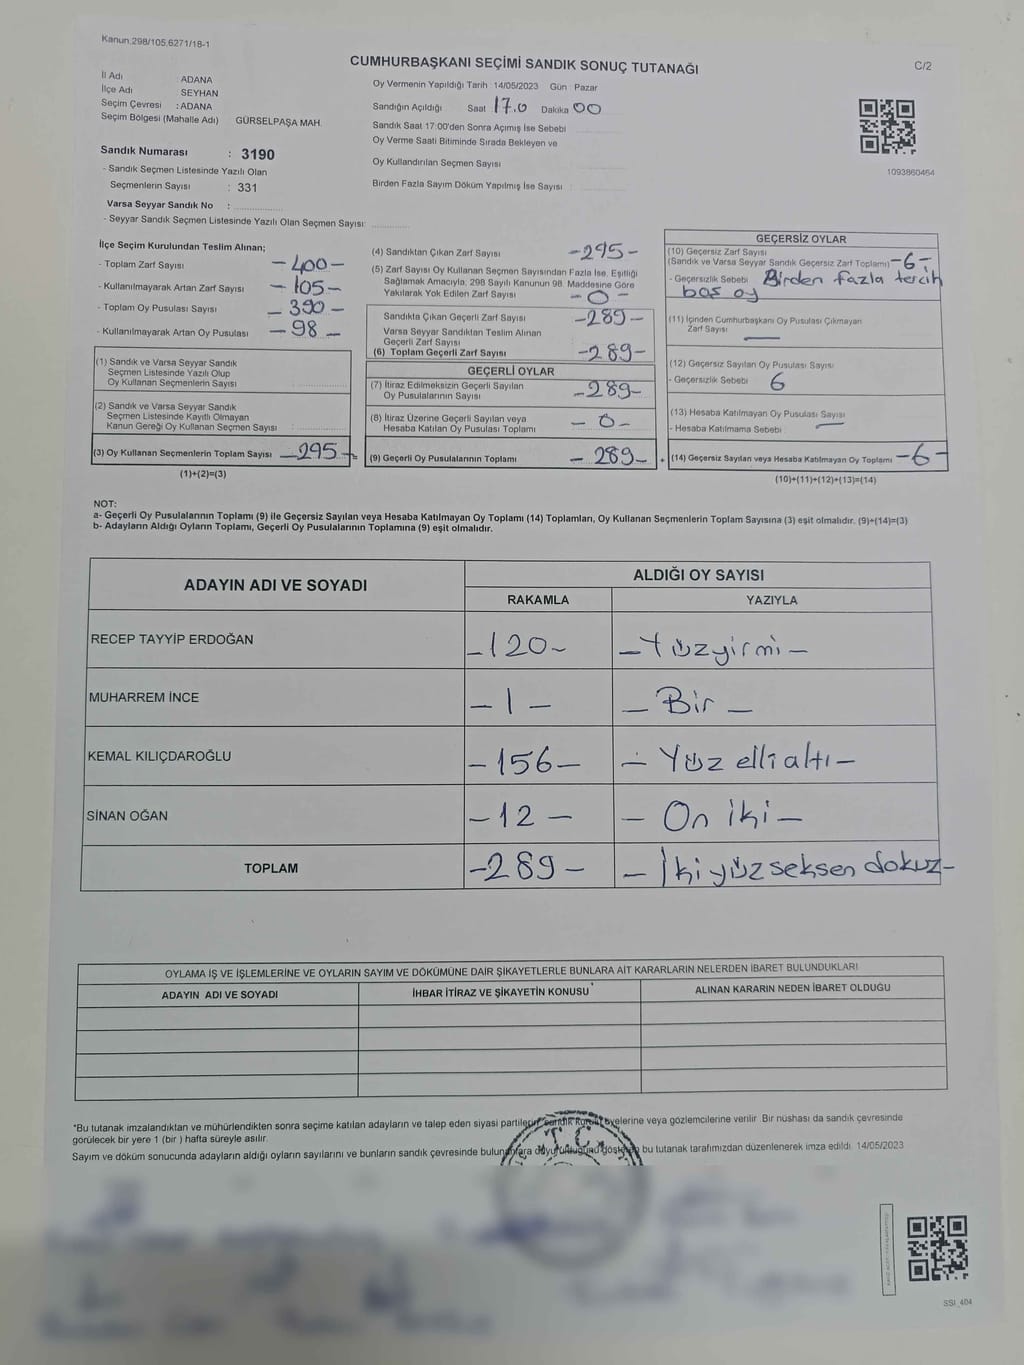 Kanun.298/105,6271/18-1
CUMHURBAŞKANI SEÇİMİ SANDIK SONUÇ TUTANAĞI
C/2
İl Adı : ADANA
İlçe Adı : SEYHAN
Seçim Çevresi : ADANA
Seçim Bölgesi (Mahalle Adı) GÜRSELPAŞA MAH.
Sandık Numarası : 3190
- Sandık Seçmen Listesinde Yazılı Olan
Seçmenlerin Sayısı : 331
Varsa Seyyar Sandık No :
- Seyyar Sandık Seçmen Listesinde Yazılı Olan Seçmen Sayısı:
Oy Vermenin Yapıldığı Tarih : 14/05/2023 Gün : Pazar
Sandığın Açıldığı Saat 17.0 Dakika 00
Sandık Saat 17:00'den Sonra Açımış İse Sebebi
Oy Verme Saati Bitiminde Sırada Bekleyen ve
Oy Kullandırılan Seçmen Sayısı
Birden Fazla Sayım Döküm Yapılmış İse Sayısı :
1093860464
İlçe Seçim Kurulundan Teslim Alınan;
- Toplam Zarf Sayısı - 400 -
- Kullanılmayarak Artan Zarf Sayısı - 105 -
- Toplam Oy Pusulası Sayısı - 390 -
- Kullanılmayarak Artan Oy Pusulası - 98 -
(1) Sandık ve Varsa Seyyar Sandık
Seçmen Listesinde Yazılı Olup
Oy Kullanan Seçmenlerin Sayısı
(2) Sandık ve Varsa Seyyar Sandık
Seçmen Listesinde Kayıtlı Olmayan
Kanun Gereği Oy Kullanan Seçmen Sayısı :
(3) Oy Kullanan Seçmenlerin Toplam Sayısı - 295 - =
(1)+(2)=(3)
(4) Sandıktan Çıkan Zarf Sayısı - 295 -
(5) Zarf Sayısı Oy Kullanan Seçmen Sayısından Fazla İse, Eşitliği
Sağlamak Amacıyla, 298 Sayılı Kanunun 98. Maddesine Göre
Yakılarak Yok Edilen Zarf Sayısı - 0 -
Sandıkta Çıkan Geçerli Zarf Sayısı - 289 -
Varsa Seyyar Sandıktan Teslim Alınan
Geçerli Zarf Sayısı
(6) Toplam Geçerli Zarf Sayısı - 289 -
GEÇERLİ OYLAR
(7) İtiraz Edilmeksizin Geçerli Sayılan
Oy Pusulalarının Sayısı - 289 -
(8) İtiraz Üzerine Geçerli Sayılan veya
Hesaba Katılan Oy Pusulası Toplamı - 0 -
(9) Geçerli Oy Pusulalarının Toplamı - 289 - +
GEÇERSİZ OYLAR
(10) Geçersiz Zarf Sayısı
(Sandık ve Varsa Seyyar Sandık Geçersiz Zarf Toplamı) - 6 -
- Geçersizlik Sebebi : Birden fazla tercih
boş oy
(11) İçinden Cumhurbaşkanı Oy Pusulası Çıkmayan
Zarf Sayısı —
(12) Geçersiz Sayılan Oy Pusulası Sayısı
- Geçersizlik Sebebi 6
(13) Hesaba Katılmayan Oy Pusulası Sayısı —
- Hesaba Katılmama Sebebi
(14) Geçersiz Sayılan veya Hesaba Katılmayan Oy Toplamı - 6 -
(10)+(11)+(12)+(13)=(14)
NOT:
a- Geçerli Oy Pusulalarının Toplamı (9) ile Geçersiz Sayılan veya Hesaba Katılmayan Oy Toplamı (14) Toplamları, Oy Kullanan Seçmenlerin Toplam Sayısına (3) eşit olmalıdır. (9)+(14)=(3)
b- Adayların Aldığı Oyların Toplamı, Geçerli Oy Pusulalarının Toplamına (9) eşit olmalıdır.
ADAYIN ADI VE SOYADI
ALDIĞI OY SAYISI
RAKAMLA YAZIYLA
RECEP TAYYİP ERDOĞAN - 120 - - Yüzyirmi -
MUHARREM İNCE - 1 - - Bir -
KEMAL KILIÇDAROĞLU - 156 - - Yüz elli altı -
SİNAN OĞAN - 12 - - On iki -
TOPLAM - 289 - - İki yüz seksen dokuz -
OYLAMA İŞ VE İŞLEMLERİNE VE OYLARIN SAYIM VE DÖKÜMÜNE DAİR ŞİKAYETLERLE BUNLARA AİT KARARLARIN NELERDEN İBARET BULUNDUKLARI
ADAYIN ADI VE SOYADI İHBAR İTİRAZ VE ŞİKAYETİN KONUSU ALINAN KARARIN NEDEN İBARET OLDUĞU
*Bu tutanak imzalandıktan ve mühürlendikten sonra seçime katılan adayların ve talep eden siyasi partilerin sandık kurulu üyelerine veya gözlemcilerine verilir. Bir nüshası da sandık çevresinde
görülecek bir yere 1 (bir ) hafta süreyle asılır.
Sayım ve döküm sonucunda adayların aldığı oyların sayılarını ve bunların sandık çevresinde bulunanlara duyurulduğunu gösteren bu tutanak tarafımızdan düzenlenerek imza edildi. 14/05/2023
T.C.
SSI_404